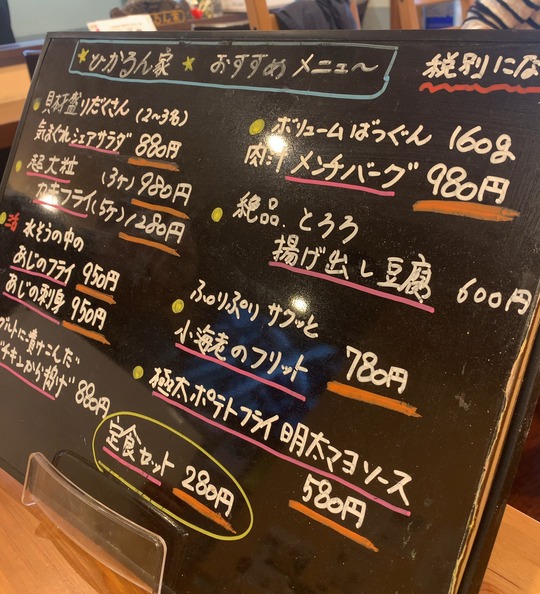 ★ひかるん家★ おすすめメニュー～
税別にな
具材盛りだくさん(2~3名)
気まぐれシェアサラダ 880円
超大粒 (3ヶ) 980円
カキフライ(5ヶ) 1280円
水そうの中の
あじのフライ 950円
あじの刺身 950円
グルトに漬けこんだ
チキンから揚げ 880円
ボリュームばつぐん 160g
肉汁メンチバーグ 980円
絶品 とろろ
揚げ出し豆腐 600円
ぷりぷり サクッと
小海老のフリット 780円
極太ポテトフライ明太マヨソース
580円
定食セット 280円